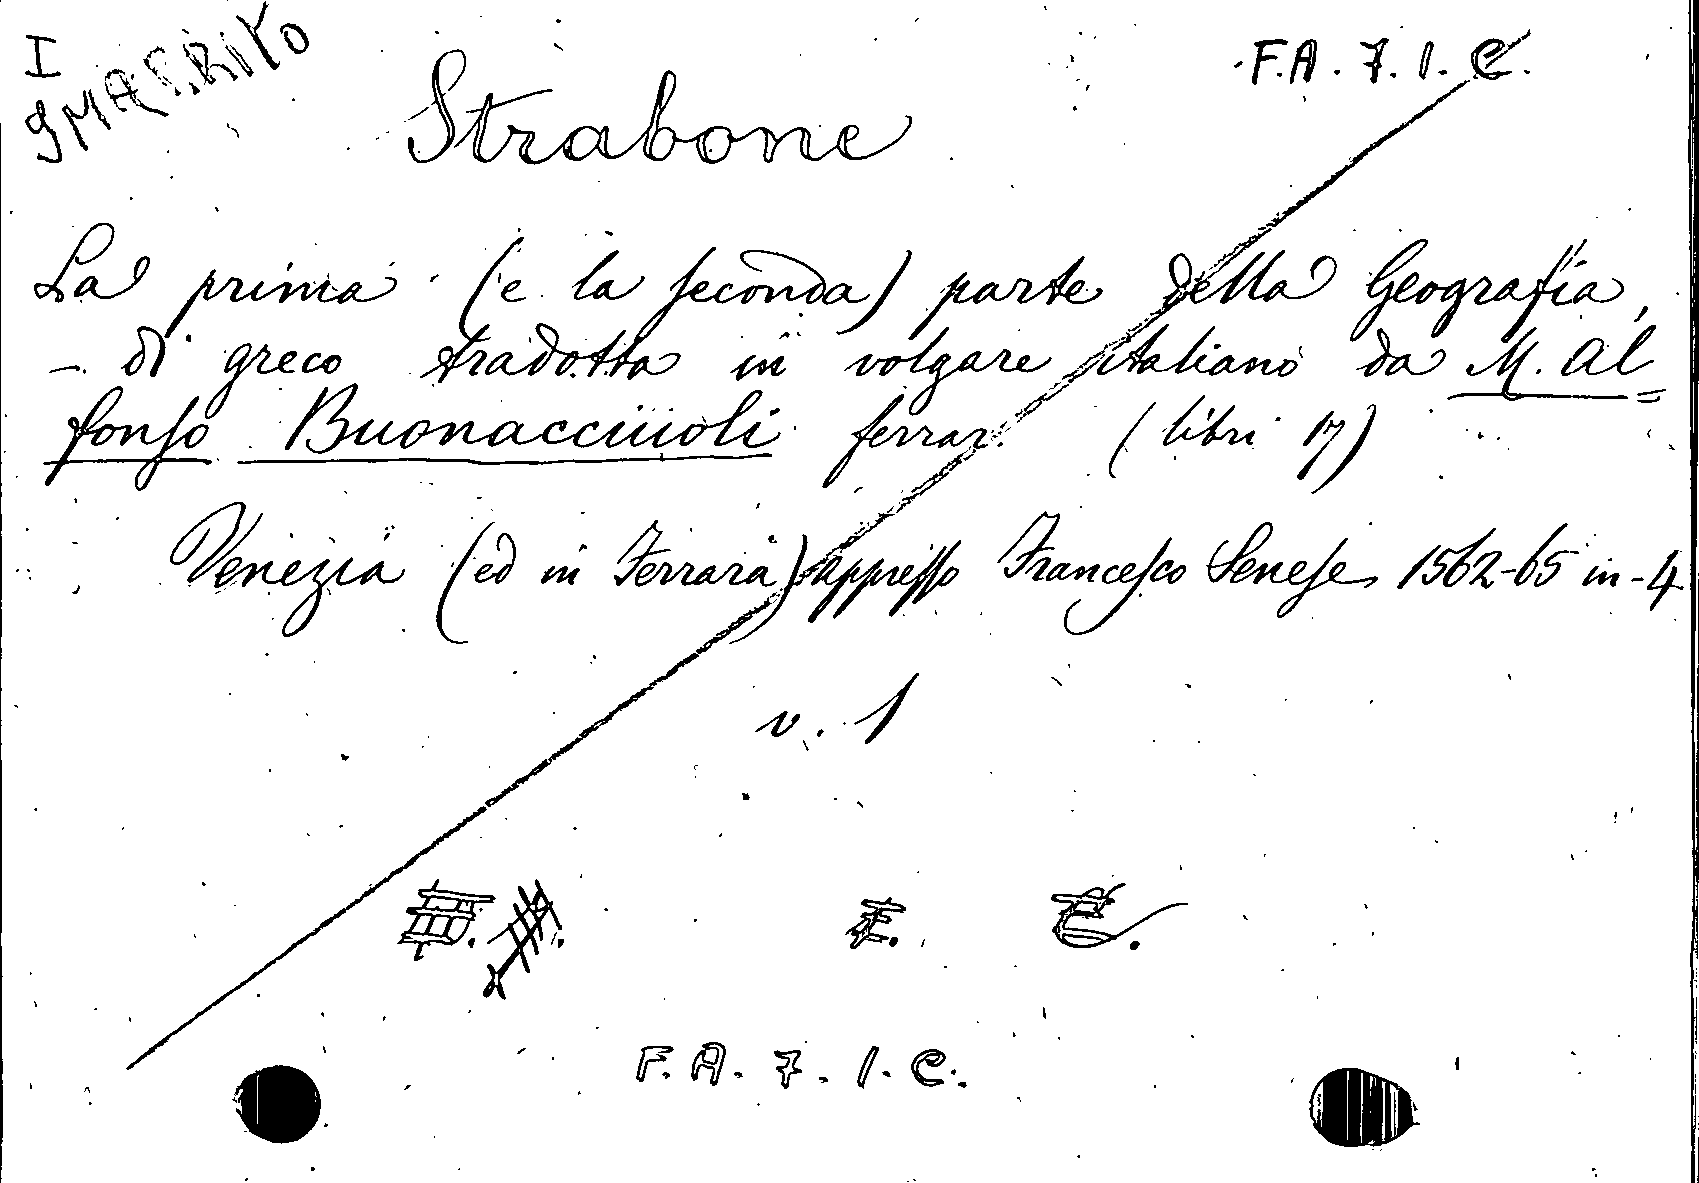 I
SMARRITO
F.A. 7. I. C.
Strabone
La prima (e la seconda) parte della Geografia,
- di greco tradotta in volgare italiano da M. Al=
fonso Buonacciuoli ferrar. (libri 17)
Venezia (ed in Ferrara) appresso Francesco Senese 1562-65 in-4
v. 1
F. A. 7. I. C.